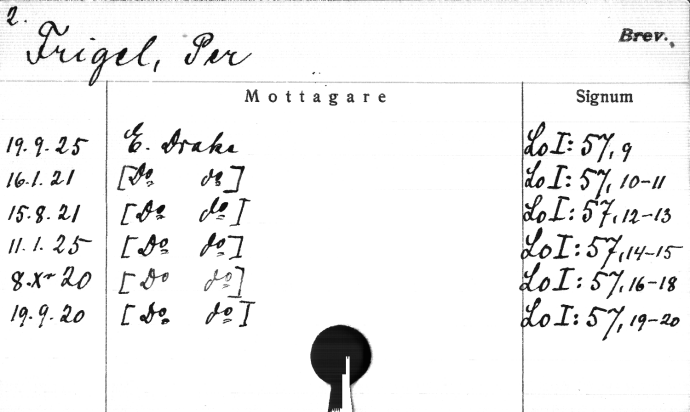 2.
Frigel, Per
Brev.
Mottagare Signum
19.9.25 E. Drake LoI: 57, 9
16.1.21 [Do do] LoI: 57, 10-11
15.8.21 [Do do] LoI: 57, 12-13
11.1.25 [Do do] LoI: 57, 14-15
8.Xr 20 [Do do] LoI: 57, 16-18
19.9.20 [Do do] LoI: 57, 19-20